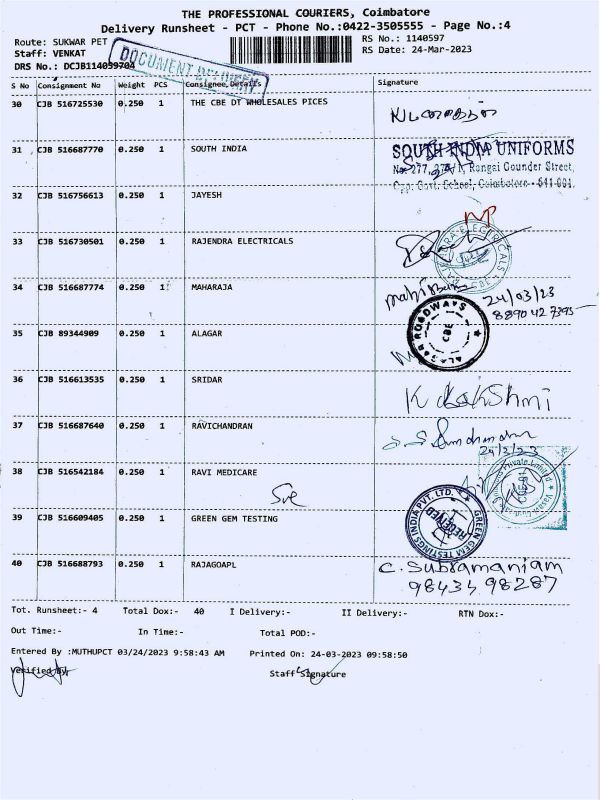 THE PROFESSIONAL COURIERS, Coimbatore
Delivery Runsheet - PCT - Phone No.:0422-3505555 - Page No.:4
Route: SUKWAR PET
RS No.: 1140597
Staff: VENKAT
RS Date: 24-Mar-2023
DRS No.: DCJB114059704
DOCUMENT
S No Consignment No Weight PCS Consignee Details Signature
30 CJB 516725530 0.250 1 THE CBE DT WHOLESALES PICES
31 CJB 516687770 0.250 1 SOUTH INDIA
SOUTH INDIA UNIFORMS
No. 277, Rangai Gounder Street,
Opp: Govt. School, Coimbatore - 641 001.
32 CJB 516756613 0.250 1 JAYESH
33 CJB 516730501 0.250 1 RAJENDRA ELECTRICALS
34 CJB 516687774 0.250 1 MAHARAJA
24/03/23
8890427395
35 CJB 89344909 0.250 1 ALAGAR
ALAGAR ROADWAYS
CBE
36 CJB 516613535 0.250 1 SRIDAR
K LakShmi
37 CJB 516687640 0.250 1 RAVICHANDRAN
38 CJB 516542184 0.250 1 RAVI MEDICARE
39 CJB 516609405 0.250 1 GREEN GEM TESTING
GREEN GEM TESTINGS INDIA PVT. LTD.
RECEIVED
40 CJB 516688793 0.250 1 RAJAGOAPL
C. Subramaniam
98434 98287
Tot. Runsheet:- 4 Total Dox:- 40 I Delivery:- II Delivery:- RTN Dox:-
Out Time:- In Time:- Total POD:-
Entered By :MUTHUPCT 03/24/2023 9:58:43 AM Printed On: 24-03-2023 09:58:50
Verified By Staff Signature